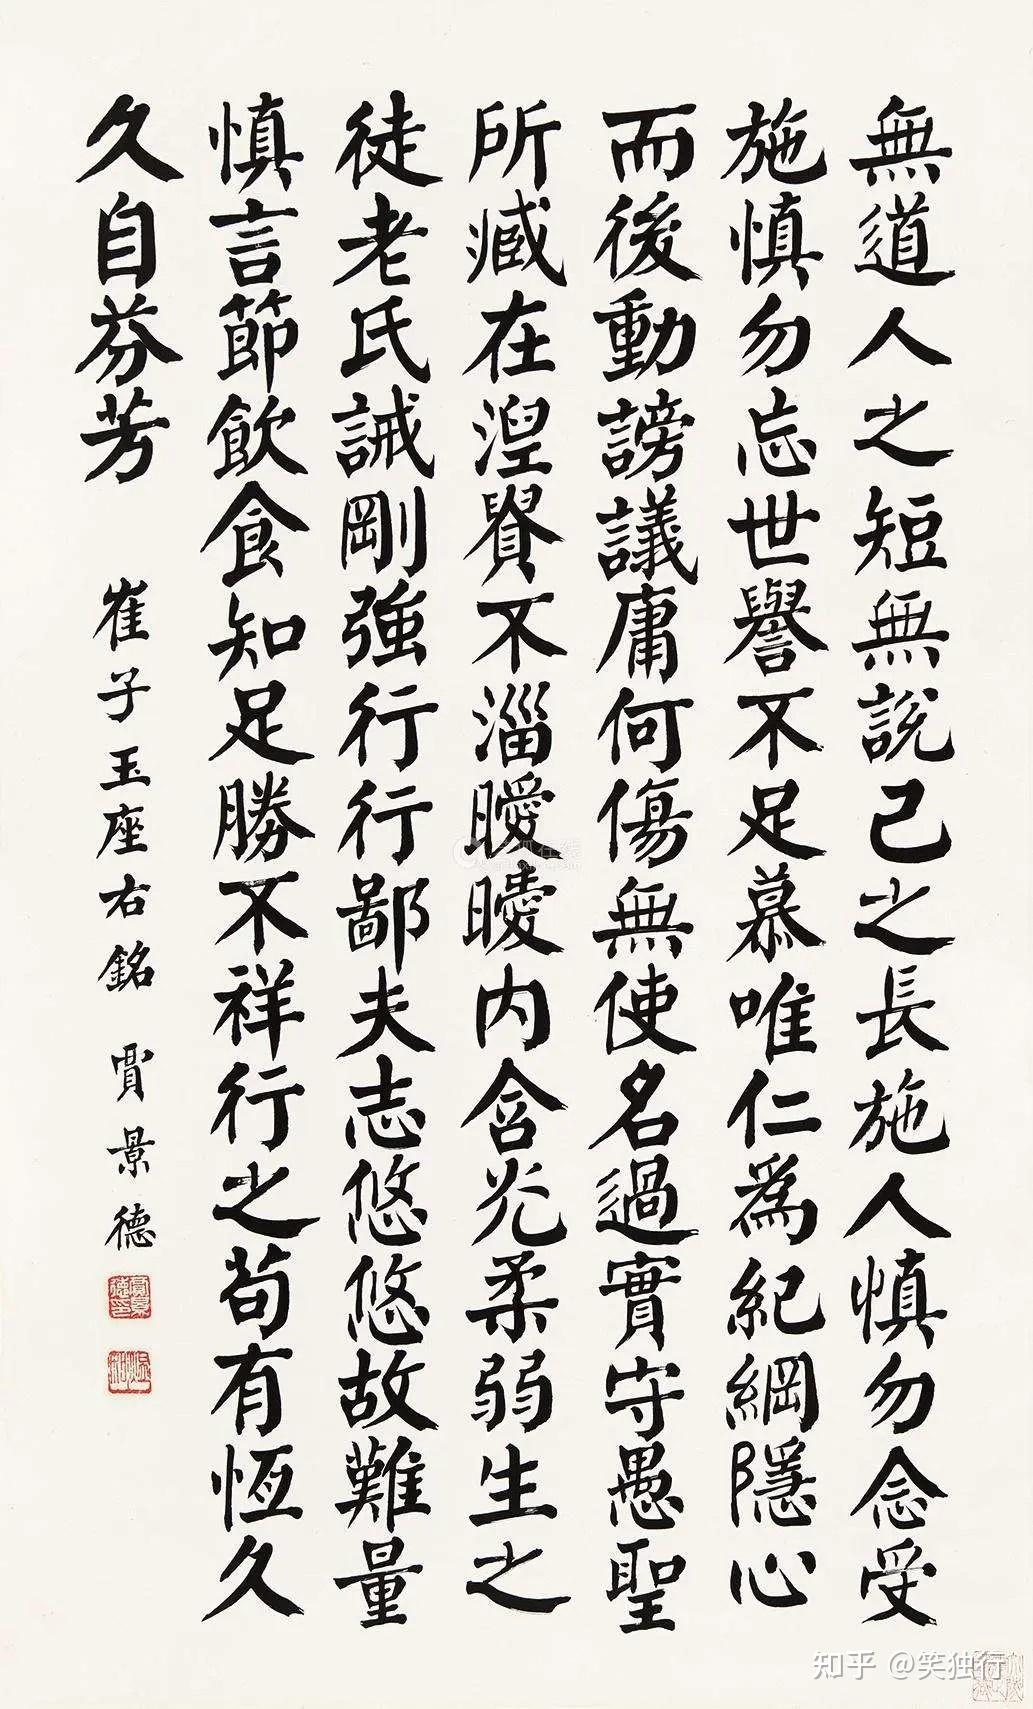 無道人之短無說己之長施人慎勿念受
施慎勿忘世譽不足慕唯仁爲紀綱隱心
而後動謗議庸何傷無使名過實守愚聖
所臧在涅貴不淄曖曖內含光柔弱生之
徒老氏誡剛強行行鄙夫志悠悠故難量
慎言節飲食知足勝不祥行之苟有恆久
久自芬芳
崔子玉座右銘 賈景德
賈景德印
知乎 @笑独行